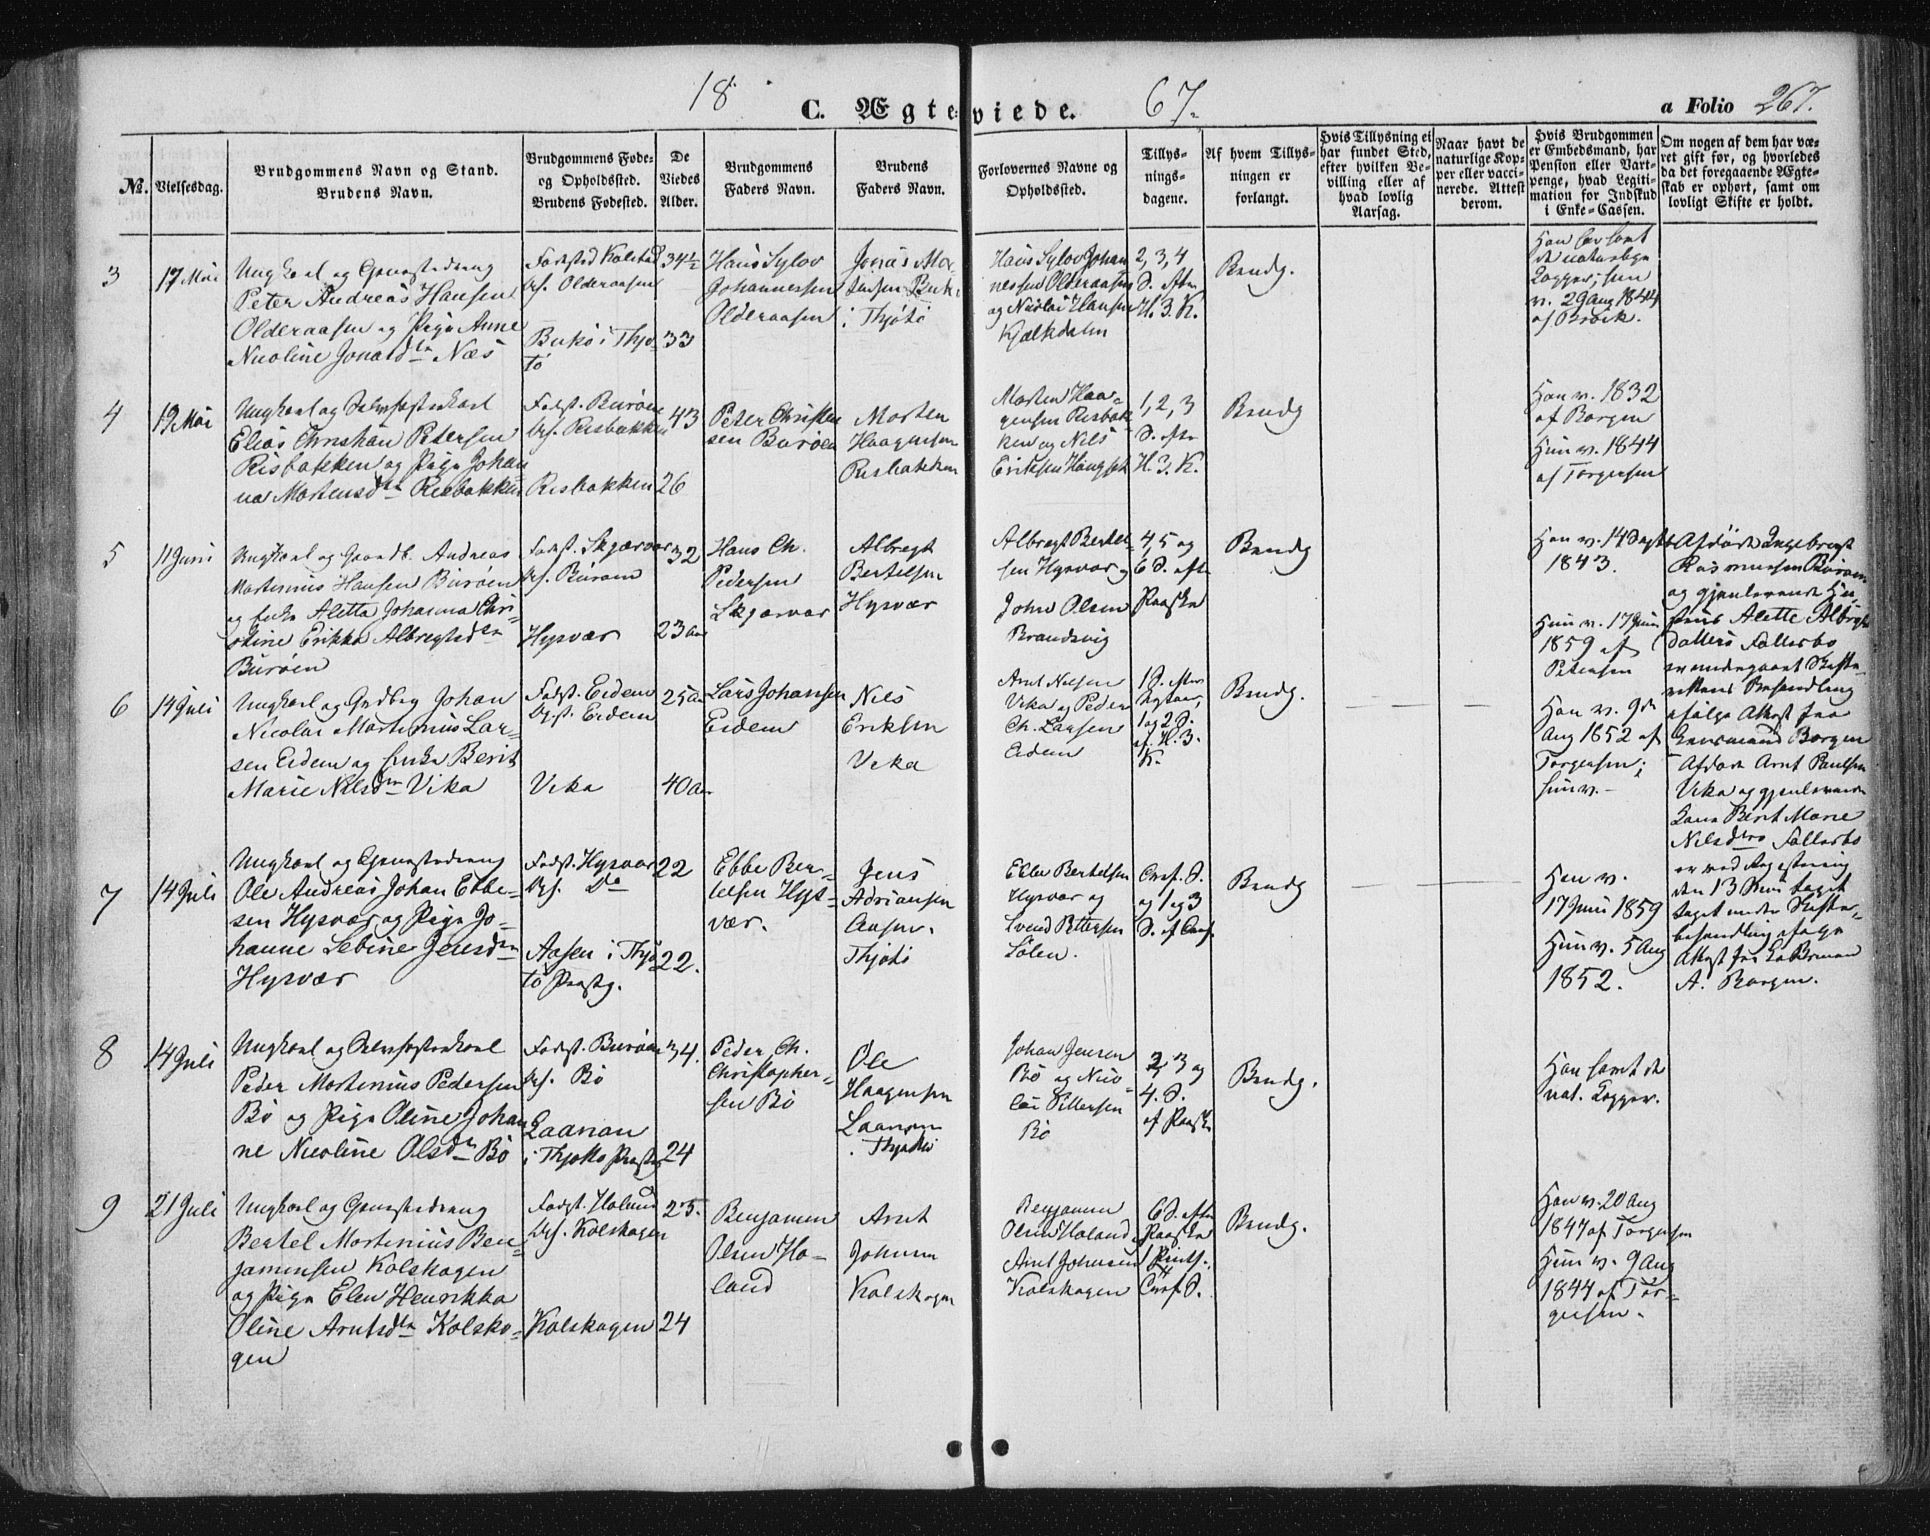 18 67.
C. Ægteviede.
a Folio 267.
No. Vielsesdag.
Brudgommens Navn og Stand.
Brudens Navn.
Brudgommens Fode-
og Opholdssted.
Brudens Fødested.
De
Viedes
Alder.
Brudgommens
Faders Navn.
Brudens
Faders Navn.
Forlovernes Navne og
Opholdssted.
Tillys-
nings-
dagene.
Af hvem Tillys-
ningen er
forlangt.
Hvis Tillysning ei
har fundet Sted,
efter hvilken Be-
villing eller af
hvad lovlig
Aarsag.
Naar havt de
naturlige Kop-
per eller vacci-
nerede. Attest
derom.
Hvis Brudgommen
er Embedsmand, har
Pension eller Vart-
penge, hvad Legiti-
mation for Indskud
i Enke-Cassen.
Om nogen af dem har væ-
ret gift før, og hvorledes
da det foregaaende Ægte-
skab er ophørt, samt om
lovligt Skifte er holdt.
3
17 Mai
Ungkarl og
Peter Andreas Hansen
Olderaasen og Pige Anne
Nicoline Jonasdtr Næs
Fødested Kolstad
Olderaasen
Bukø i Thjø-
tø
34½
33
Hans Sylov
Johannessen
Olderaasen
Jonas Mor-
tensen Bukø
i Thjøtø
Hans Sylov Johan
nessen Olderaasen
og Nicolai Hansen
Kjelkdalen
2, 3, 4
S. efter
H. 3. K.
Brudg.
Han har havt
de naturlige
Kopper; hun
v. 29 Aug 1844
af Brock.
4
19 Mai
Ungkarl og Selvfosterkarl
Elias Christian Petersen
Risbakken og Pige Johan
na Mortensdtr Risbakken
Fødst. Burøen
Risbakken
Risbakken
43
26
Peter Christen
sen Burøen
Morten
Haagensen
Risbakken
Morten Haa-
gensen Risbak-
ken og Nils
Eriksen
1, 2, 3
S. efter
H. 3. K.
Brudg
Han v. 1832
af Borgen
Hun v. 1844
af Torgersen
5
11 Juni
Ungkarl og Gaardb. Andreas
Martinius Hansen Burøen
og Enke Aletta Johanna Chri-
stine Erikka Albregtsdtr
Burøen
Fødst. Skjærvær
Burøen
Hysvær
32
23 aar
Hans Ch.
Pedersen
Skjærvær
Albregt
Bertelsen
Hysvær
Albregt Bertel-
sen Hysvær og
John Olsen
Brandsvig
4, 5 og
6 S. efter
Paaske
Brudg
Han v. 14 Sept
1843.
Hun v. 17 Juni
1859 af
Petersen
Afdøde Ingebregt
Rasmussen Burøen
og gjenlevende Hu-
strus Alette Albregts
datters Fællesbo
er undergaaet Skifte-
rettens Behandling
ifølge Attest fra
Lensmand Borgen
6
14 Juli
Ungkarl og Grdbrg Johan
Nicolai Martinius Lar-
sen Eidem og Enke Berit
Marie Nilsdtr Vika
Fødst. Eidem
Eidem
Vika
25 aar
40 aar
Lars Johansen
Eidem
Nils
Eriksen
Vika
Arnt Nilsen
Vika og Peder
Ch. Larsen
Eidem
1 S. efter
1 og 2 S.
af H. 3.
K.
Brudg.
Han v. 9de
Aug 1852 af
Torgersen;
hun v. –
Afdøde Arnt Paulsen
Vika og gjenlevende
Kone Berit Marie
Nilsdtrs Fællesbo
er ved Registrering
den 13 Juni taget
taget under Skifte-
behandling ifølge
Attest fra Lensman
A. Borgen.
7
14 Juli
Ungkarl og
Ole Andreas Johan Ebbe-
sen Hysvær og Pige Jo-
hanne Sebine Jensdtr
Hysvær
Fødst. Hysvær
Do
Aasen i Thjø
tø Præstg.
22
22.
Ebbe Ber-
telsen Hys-
vær.
Jens
Adriansen
Aasen.
Thjøtø
Ebbe Bertelsen
Hysvær og
Svend Pettersen
Sølen.
og 1 og 3
Brudg
Han v.
17 Juni 1859
Hun v. 5 Aug
1852.
8
14 Juli
Ungkarl og Selvfosterkarl
Peder Mortinius Pedersen
Bø og Pige Oline Johan
ne Nicoline Olsdtr Bø
Fødst. Burøen
Bø
Laanan
i Thjøttø Præstg
34.
24
Peder Ch.
Christopher-
sen Bø
Ole
Haagensen
Laanan
Thjøttø
Johan Jensen
Bø og Nico-
lai Pettersen
Bø
2, 3 og
4. S.
af Paaske
Brudg.
Han havt de
nat. Kopper.
9
21 Juli
Ungkarl og
Bertel Martinius Ben-
jaminsen Kolskogen
og Pige Elen Henrikka
Oline Arntsdtr Kolsko-
gen
Fødst. Holand
Kolskogen
Kolskogen
25.
24
Benjamin
Olsen Ho-
land
Arnt
Johnsen
Kolskogen
Benjamin
Olsen Holand
Arnt Johnsen
Kolskogen
6 S. efter
Paaske
1 Pints.
Brudg.
Han v. 20 Aug
1847 af Torgersen
Hun v. 9 Aug
1844 af Tor-
gersen.